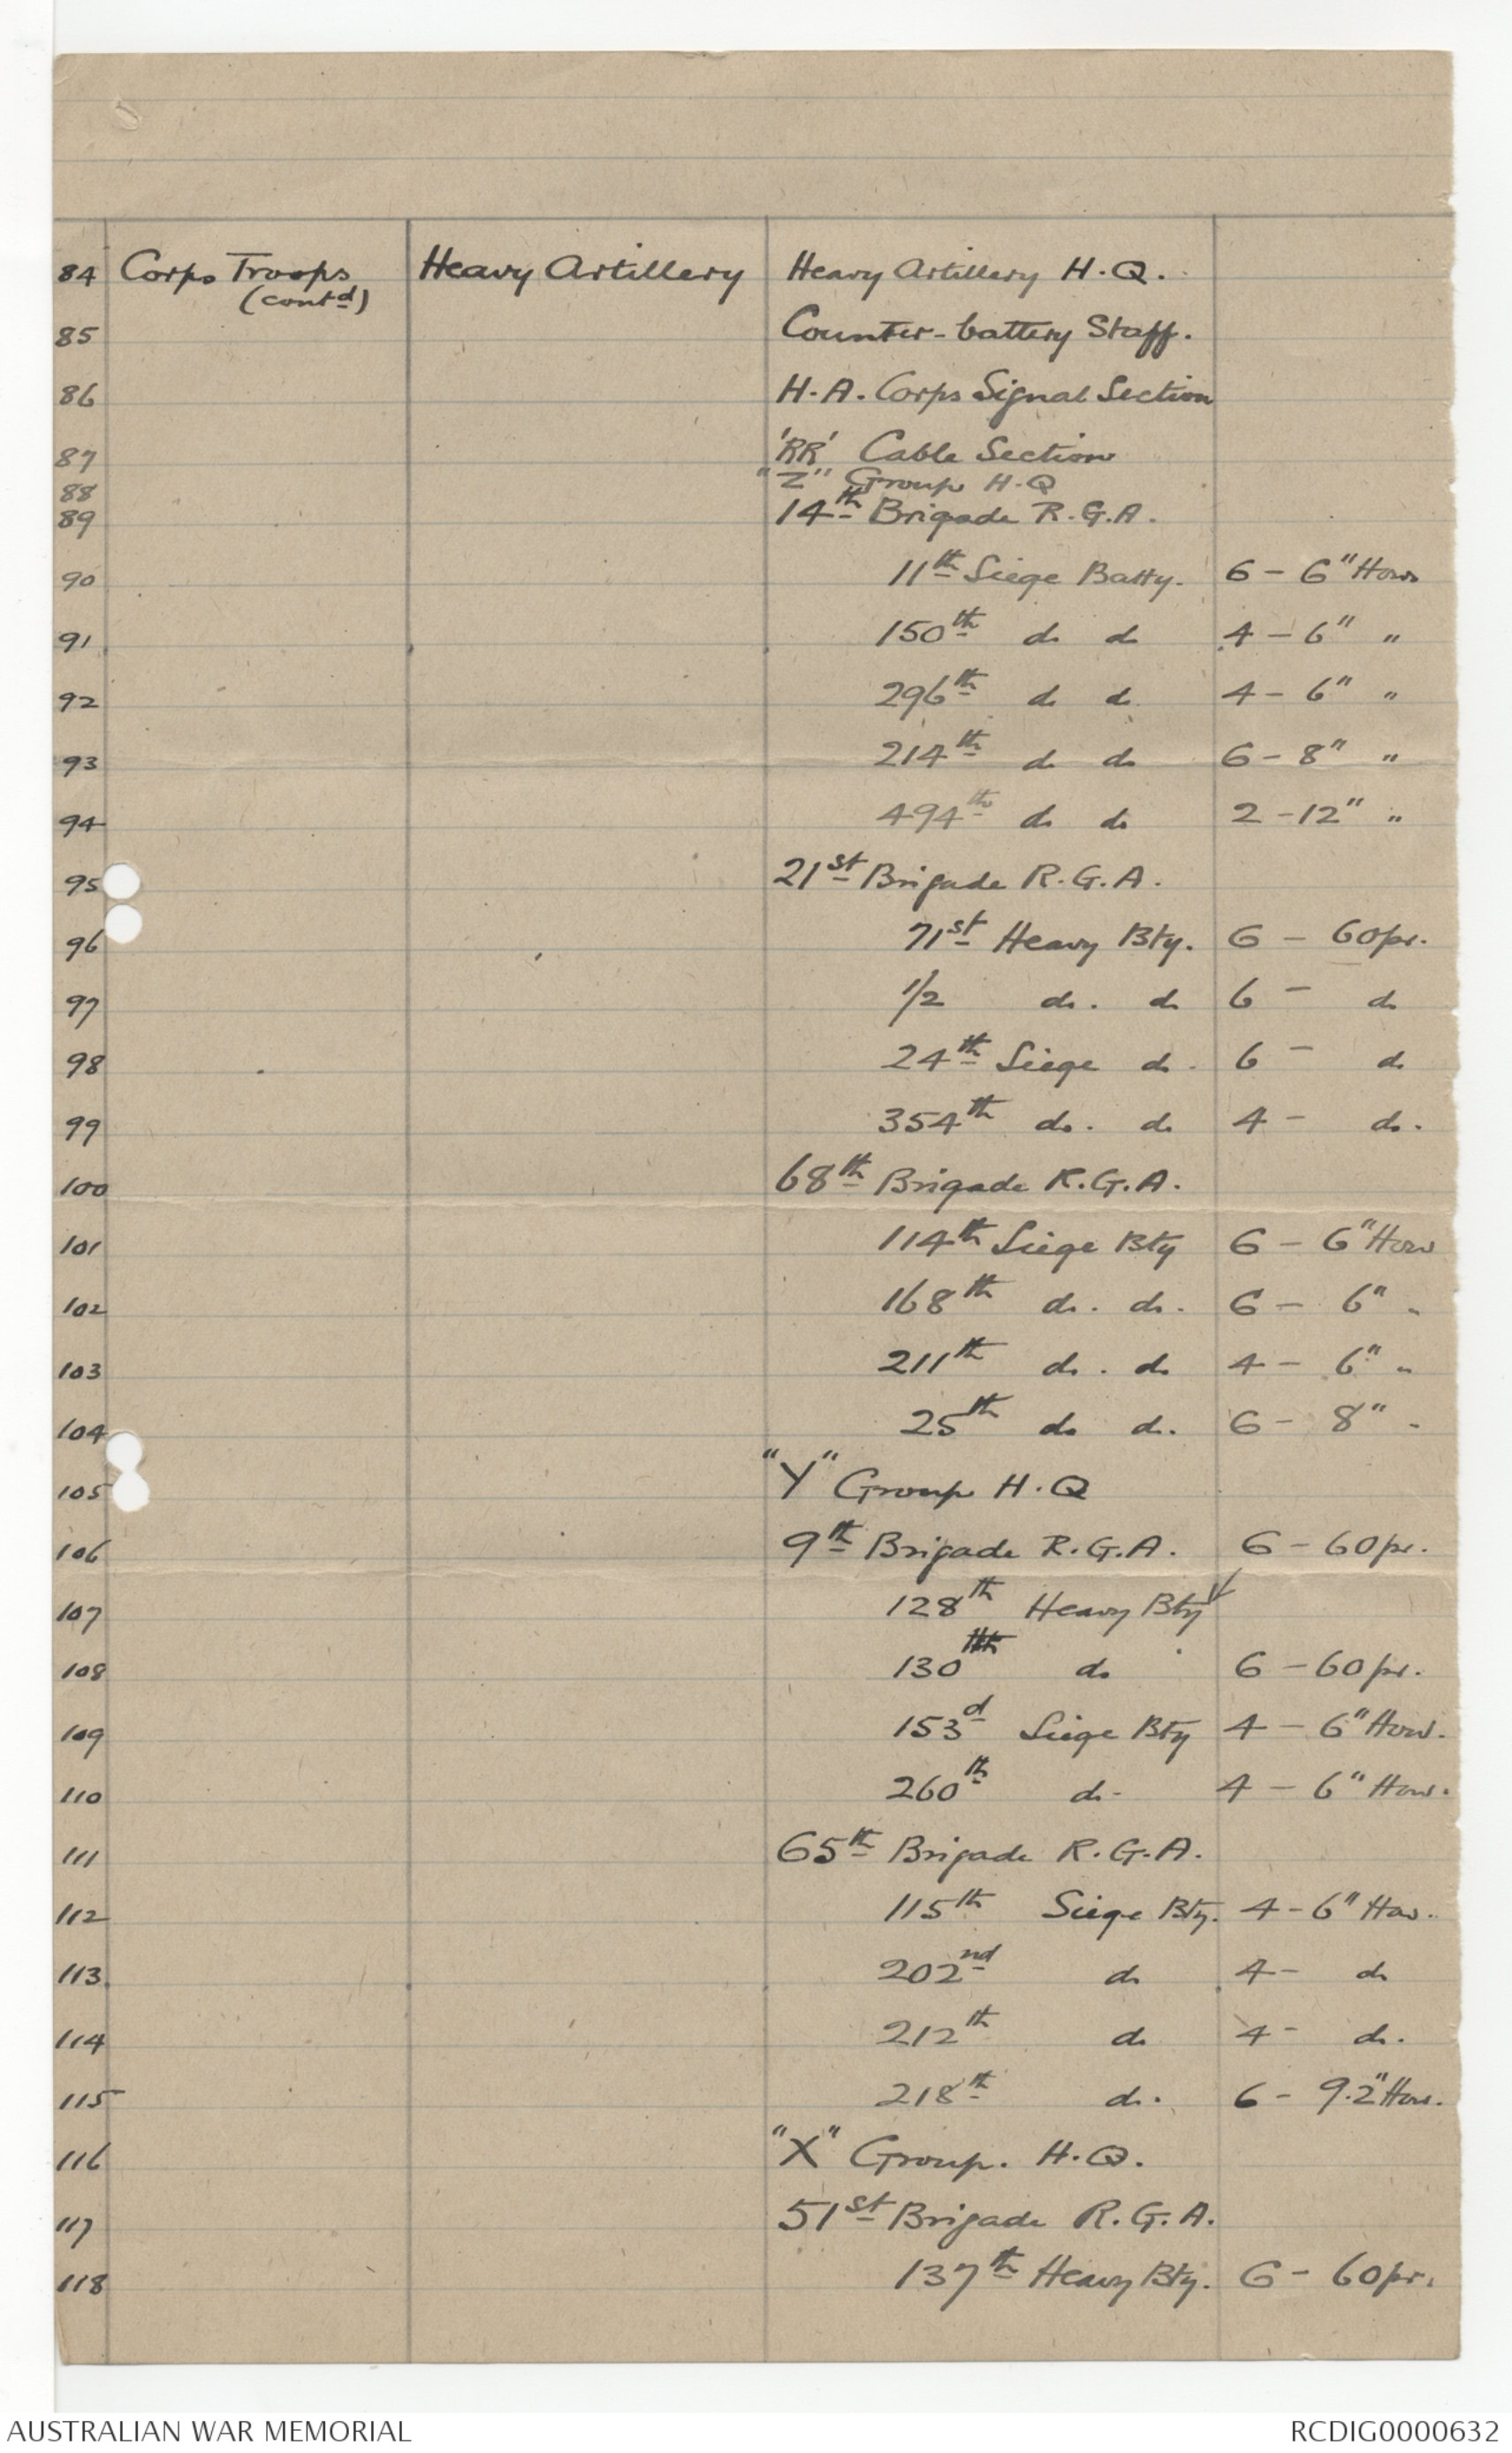 84 Corps Troops Heavy Artillery Heavy Artillery H.Q.
(contd)
85 Counter-battery Staff.
86 H.A. Corps Signal Section
87 'RR' Cable Section
88 "Z" Group H.Q
89 14th Brigade R.G.A.
90 11th Siege Batty. 6 - 6" Hows
91 150th do do 4 - 6" "
92 296th do do 4 - 6" "
93 214th do do 6 - 8" "
94 494th do do 2 - 12" "
95 21st Brigade R.G.A.
96 71st Heavy Bty. 6 - 60pr.
97 1/2 do. do 6 - do
98 24th Siege do. 6 - do
99 354th do. do 4 - do.
100 68th Brigade R.G.A.
101 114th Siege Bty 6 - 6" How
102 168th do. do. 6 - 6" "
103 211th do. do 4 - 6" "
104 25th do do. 6 - 8" "
105 "Y" Group H.Q
106 9th Brigade R.G.A. 6 - 60pr.
107 128th Heavy Bty
108 130th do 6 - 60pr.
109 153d Siege Bty 4 - 6" How.
110 260th do - 4 - 6" How.
111 65th Brigade R.G.A.
112 115th Siege Bty. 4 - 6" How.
113 202nd do 4 - do
114 212th do 4 - do.
115 218th do. 6 - 9.2" How.
116 "X" Group. H.Q.
117 51st Brigade R.G.A.
118 137th Heavy Bty. 6 - 60pr.
AUSTRALIAN WAR MEMORIAL RCDIG0000632